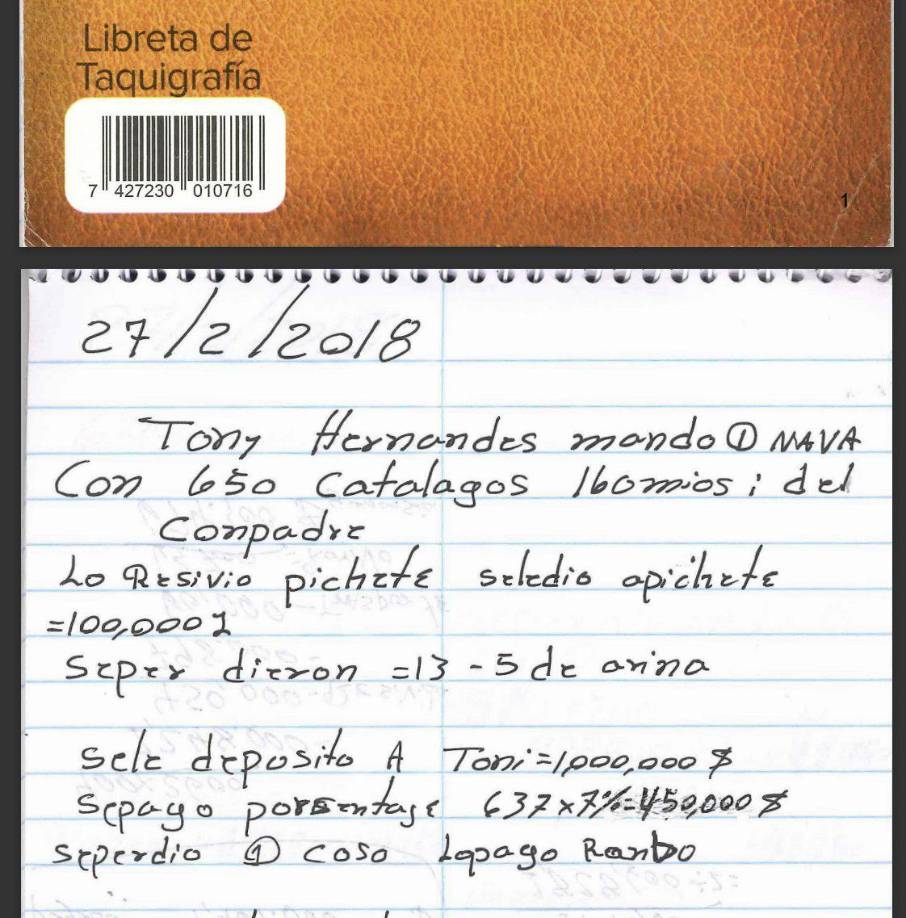 Libreta de
Taquigrafía
7 427230 010716
1
27/2/2018
Tony Hernandes mando ① NAVA
Con 650 Catalagos 160 mios; del
Conpadre
Lo Resivio pichete seledio apichete
=100,000 L
Seper dieron =13 - 5 de arina
Sele deposito A Toni=1,000,000 $
Sepago porsentage 637x7%=450,000 $
seperdio ① coso Lopago Ranbo